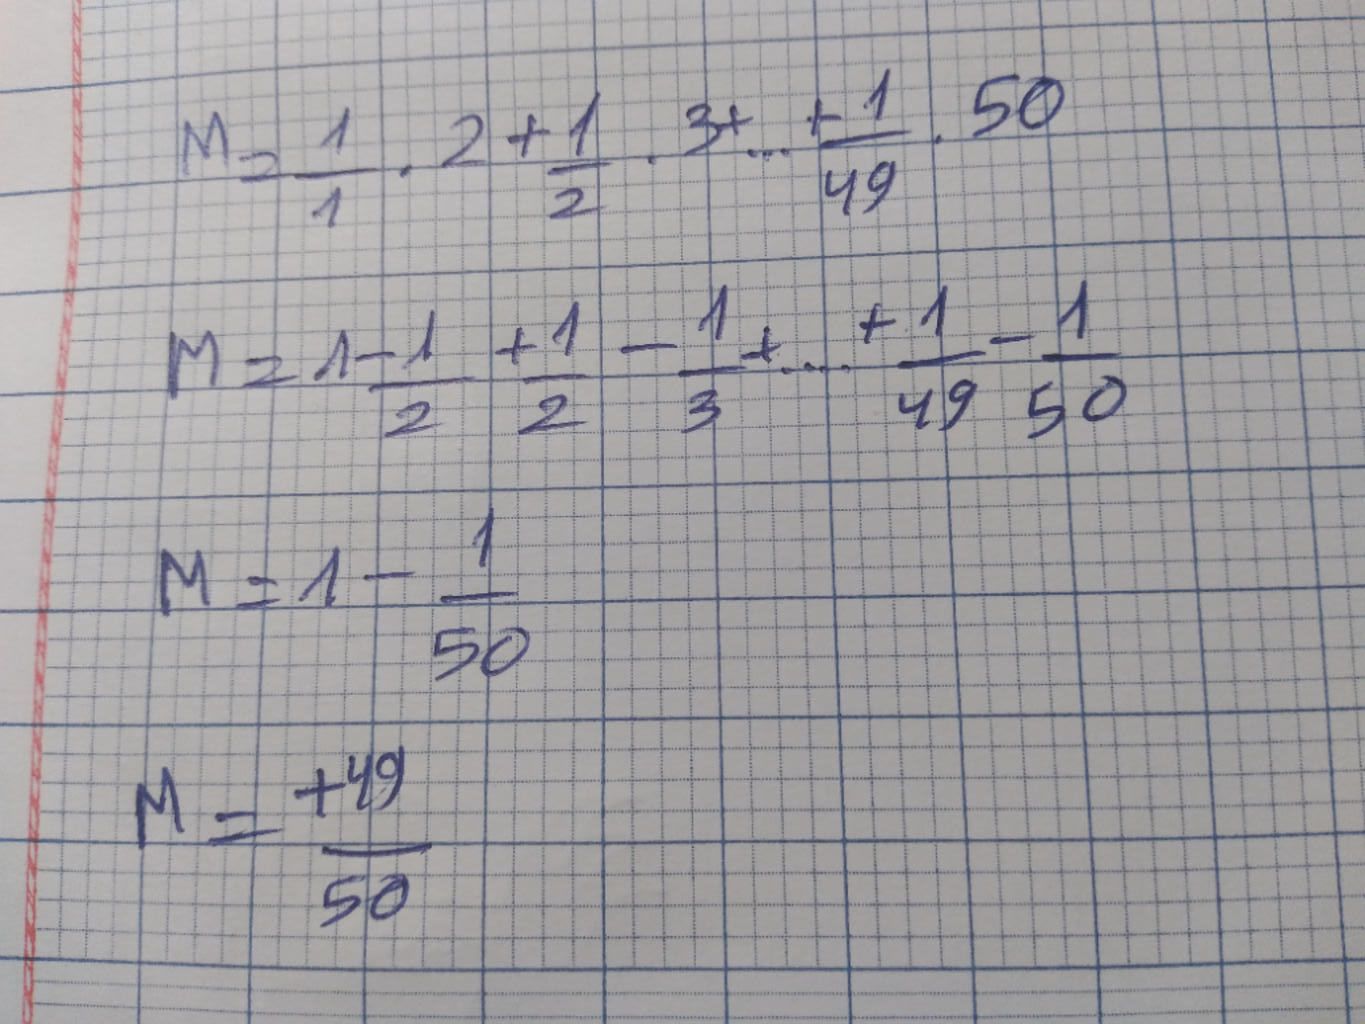 M = 1/1 . 2 + 1/2 . 3 + ... + 1/49 . 50
M = 1 - 1/2 + 1/2 - 1/3 + .... + 1/49 - 1/50
M = 1 - 1/50
M = +49/50